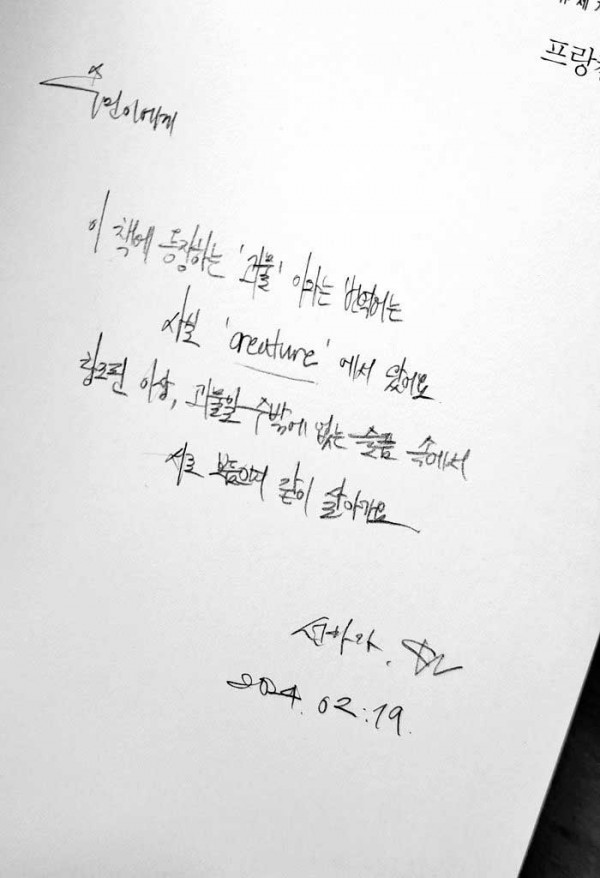 프랑
수민이에게
이 책에 등장하는 '괴물' 이라는 번역어는
사실 'creature' 에서 왔어요
창조된 이상, 괴물일 수밖에 없는 슬픔 속에서
서로 보듬으며 같이 살아가요
선아라.
2024. 02. 19.